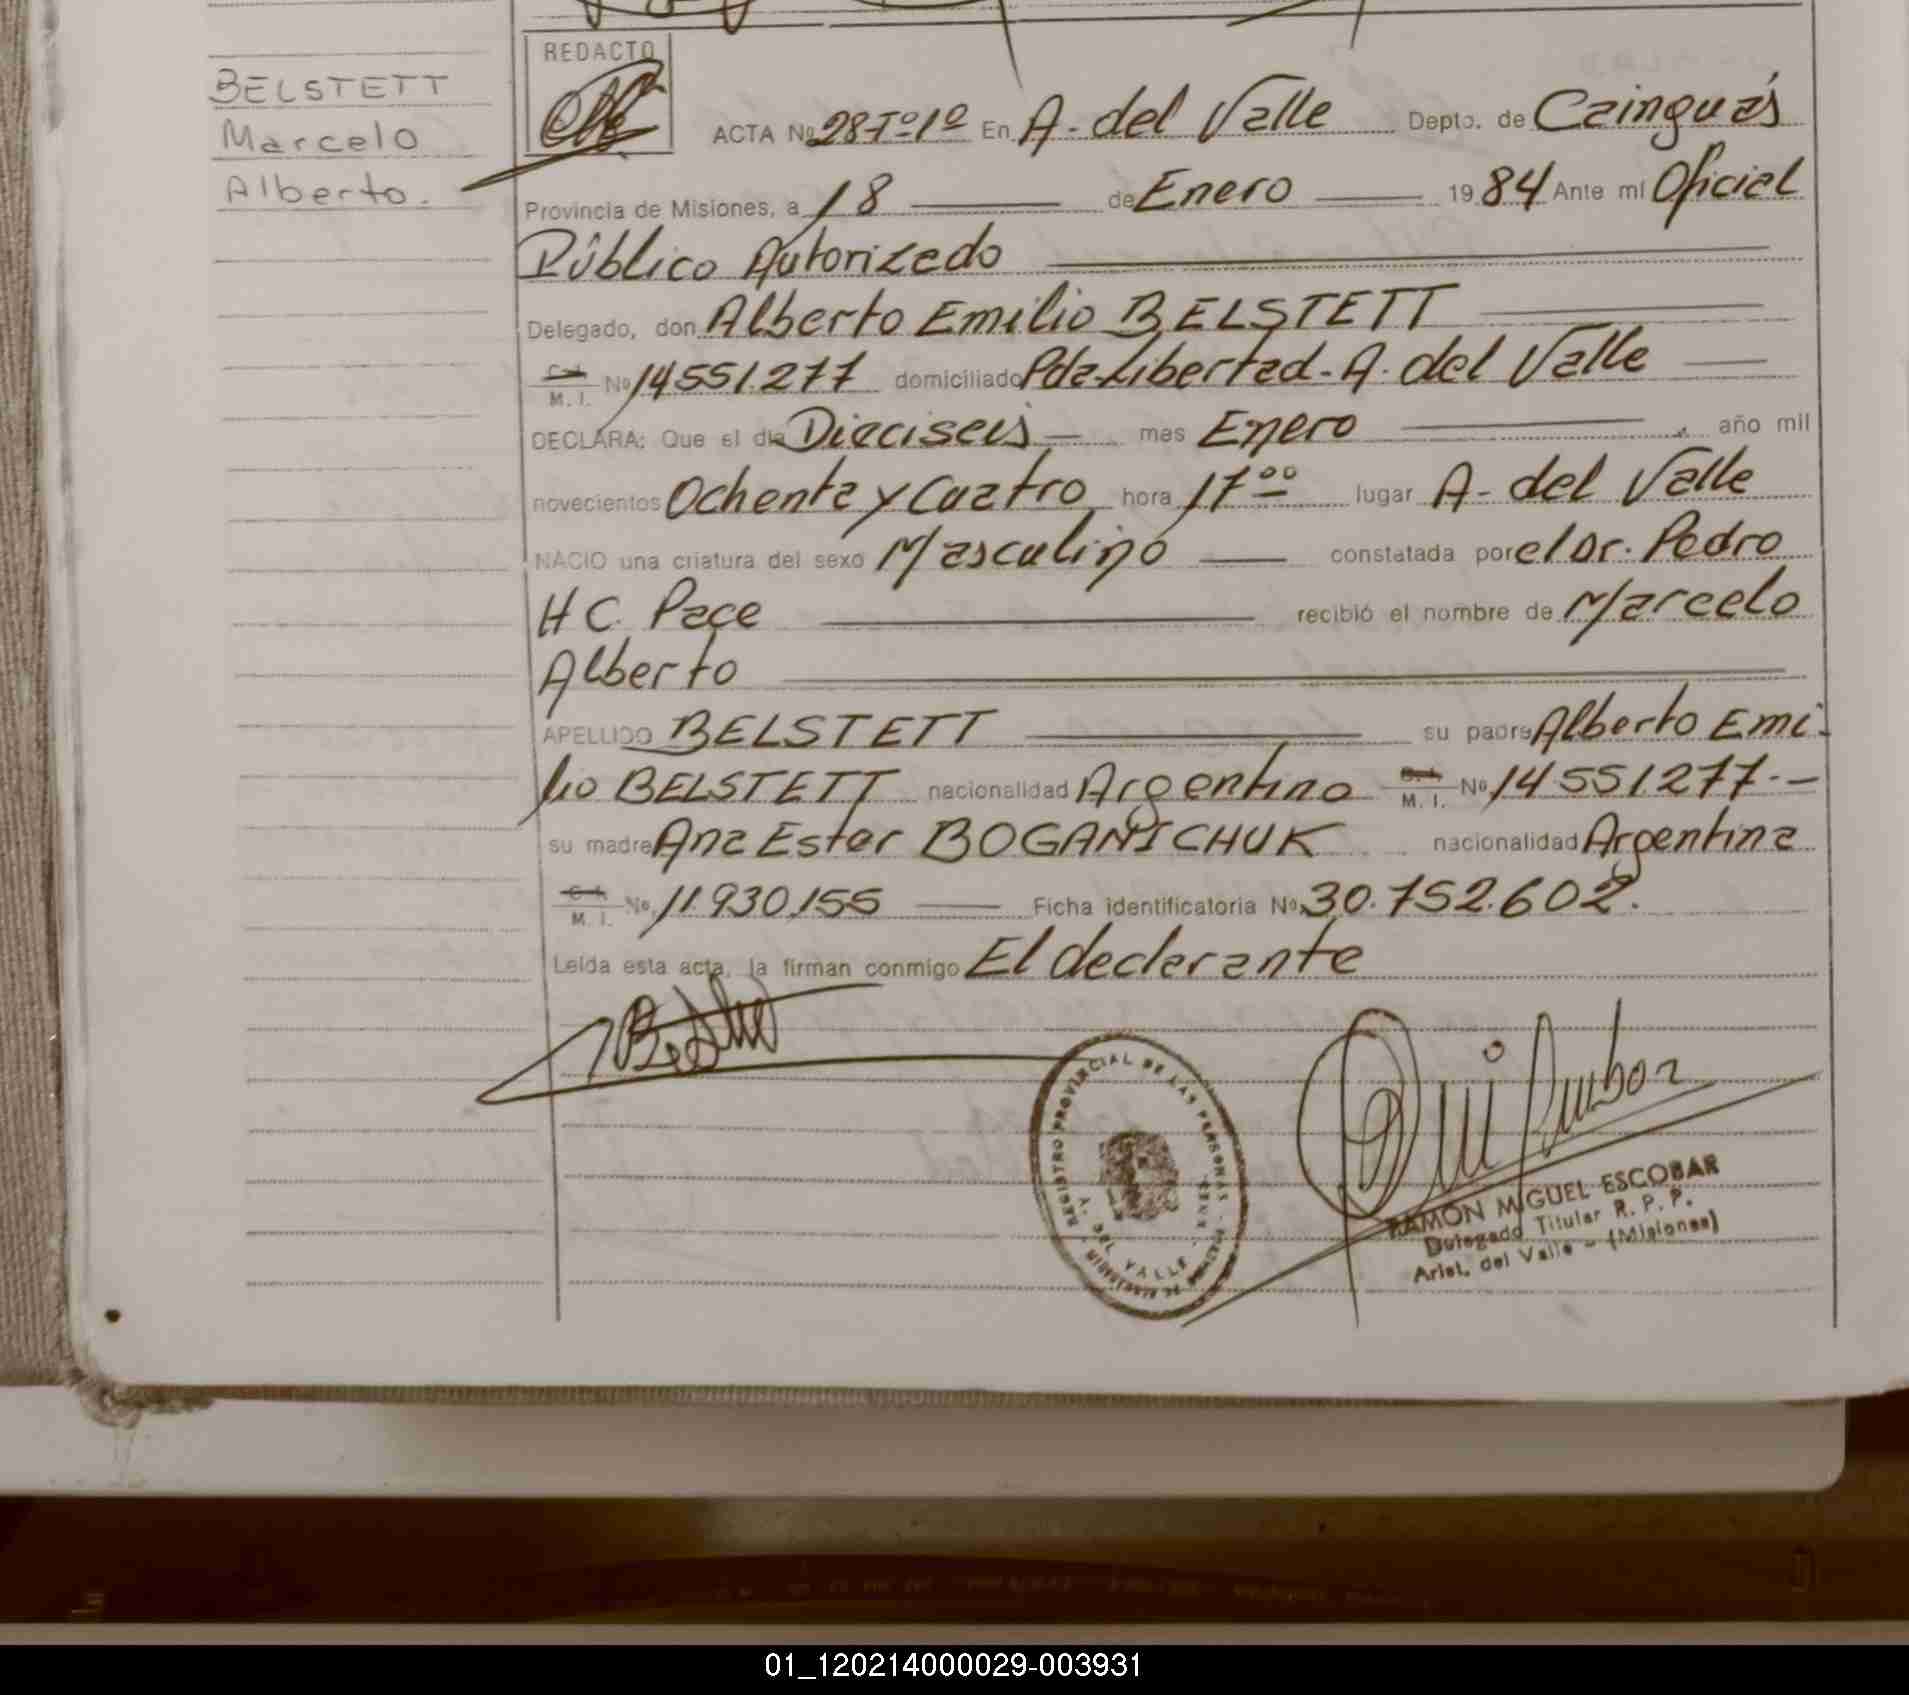 BELSTETT
Marcelo
Alberto.
REDACTO
ACTA Nº 28-Tº-1º En A. del Valle Depto. de Cainguás
Provincia de Misiones, a 18 de Enero 1984 Ante mí Oficial
Público Autorizado
Delegado, don Alberto Emilio BELSTETT
C. I. M. I. Nº 14551.277 domiciliado Pda-Libertad-A. del Valle
DECLARA: Que el día Dieciseis mes Enero año mil
novecientos Ochenta y Cuatro hora 17ºº lugar A- del Valle
NACIO una criatura del sexo Masculino constatada por el Dr. Pedro
H C. Pace recibió el nombre de Marcelo
Alberto
APELLIDO BELSTETT su padre Alberto Emi-
lio BELSTETT nacionalidad Argentino C. I. M. I. Nº 14551277.-
su madre Ana Ester BOGANICHUK nacionalidad Argentina
C. I. M. I. Nº 11.930.155 Ficha identificatoria Nº 30.752.602.
Leída esta acta, la firman conmigo El declarante
REGISTRO PROVINCIAL DE LAS PERSONAS
A. DEL VALLE
RAMON MIGUEL ESCOBAR
Delegado Titular R. P. P.
Arist. del Valle - (Misiones)
01_120214000029-003931